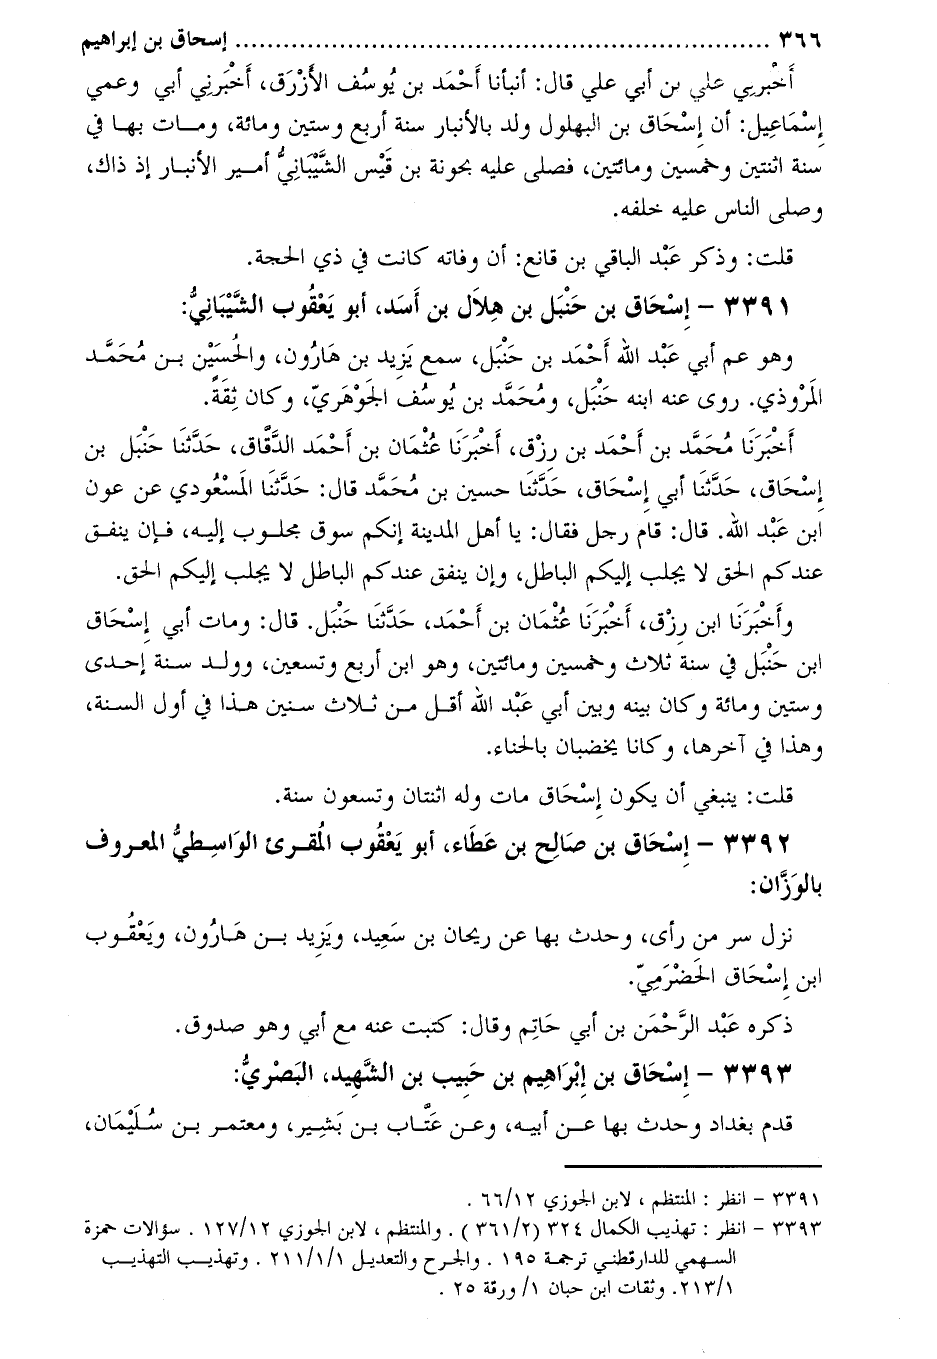 ٣٦٦ ................................................................... إسحاق بن إبراهيم
أَخْبَرَنِي علي بن أبي علي قال: أنبأنا أَحْمَد بن يُوسُف الأَزْرَق، أَخْبَرَنِي أبي وعمي
إِسْمَاعِيل: أن إِسْحَاق بن البهلول ولد بالأنبار سنة أربع وستين ومائة، ومات بها في
سنة اثنتين وخمسين ومائتين، فصلى عليه بحونة بن قَيْس الشَّيْبَانِيُّ أمير الأنبار إذ ذاك،
وصلى الناس عليه خلفه.
قلت: وذكر عَبْد الباقي بن قانع: أن وفاته كانت في ذي الحجة.
٣٣٩١ – إِسْحَاق بن حَنْبَل بن هِلاَل بن أَسَد، أبو يَعْقُوب الشَّيْبَانِيُّ:
وهو عم أبي عَبْد الله أَحْمَد بن حَنْبَل، سمع يَزِيد بن هَارُون، والحُسَيْن بن مُحَمَّد
المَرُّوذي. روى عنه ابنه حَنْبَل، ومُحَمَّد بن يُوسُف الجَوْهَرِيّ، وكان ثِقَةً.
أَخْبَرَنَا مُحَمَّد بن أَحْمَد بن رِزْق، أَخْبَرَنَا عُثْمَان بن أَحْمَد الدَّقَّاق، حَدَّثَنَا حَنْبَل بن
إِسْحَاق، حَدَّثَنَا أبي إِسْحَاق، حَدَّثَنَا حسين بن مُحَمَّد قال: حَدَّثَنَا المَسْعُودي عن عون
ابن عَبْد الله. قال: قام رجل فقال: يا أهل المدينة إنكم سوق مجلوب إليه، فإن ينفق
عندكم الحق لا يجلب إليكم الباطل، وإن ينفق عندكم الباطل لا يجلب إليكم الحق.
وأَخْبَرَنَا ابن رِزْق، أَخْبَرَنَا عُثْمَان بن أَحْمَد، حَدَّثَنَا حَنْبَل. قال: ومات أبي إِسْحَاق
ابن حَنْبَل في سنة ثلاث وخمسين ومائتين، وهو ابن أربع وتسعين، وولد سنة إحدى
وستين ومائة وكان بينه وبين أبي عَبْد الله أقل من ثلاث سنين هذا في أول السنة،
وهذا في آخرها، وكانا يخضبان بالحناء.
قلت: ينبغي أن يكون إِسْحَاق مات وله اثنتان وتسعون سنة.
٣٣٩٢ – إِسْحَاق بن صَالِح بن عَطَاء، أبو يَعْقُوب المُقرئ الوَاسِطِيُّ المعروف
بالوَزَّان:
نزل سر من رأى، وحدث بها عن ريحان بن سَعِيد، ويَزِيد بن هَارُون، ويَعْقُوب
ابن إِسْحَاق الحَضْرَمِيّ.
ذكره عَبْد الرَّحْمَن بن أبي حَاتِم وقال: كتبت عنه مع أبي وهو صدوق.
٣٣٩٣ – إِسْحَاق بن إِبْرَاهِيم بن حَبِيب بن الشَّهِيد، البَصْرِيُّ:
قدم بغداد وحدث بها عن أبيه، وعن عَتَّاب بن بَشِير، ومعتمر بن سُلَيْمَان،
٣٣٩١ – انظر : المنتظم ، لابن الجوزي ٦٦/١٢ .
٣٣٩٣ – انظر : تهذيب الكمال ٣٢٤ (٣٦١/٢) . والمنتظم ، لابن الجوزي ١٢٧/١٢ . سؤالات حمزة
السهمي للدارقطني ترجمة ١٩٥ . والجرح والتعديل ٢١١/١/١ . وتهذيب التهذيب
٢١٣/١. وثقات ابن حبان ١/ ورقة ٢٥ .